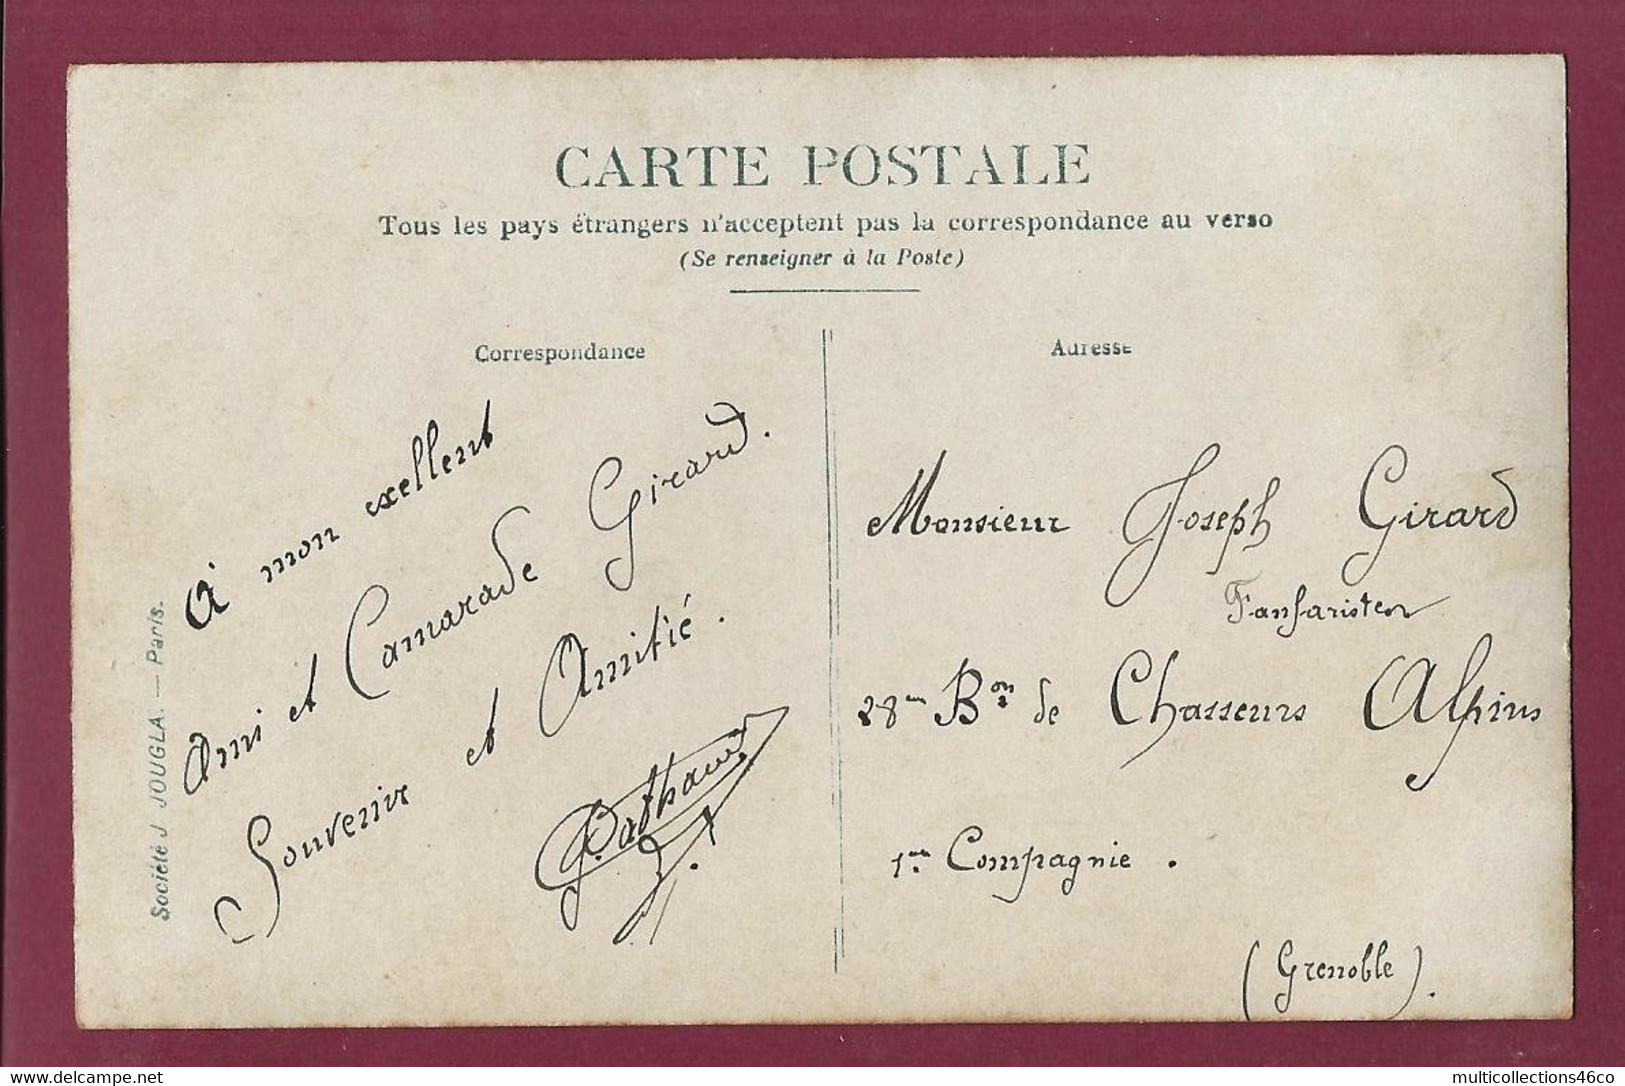 CARTE POSTALE
Tous les pays étrangers n'acceptent pas la correspondance au verso
(Se renseigner à la Poste)
Correspondance
À mon exellent
Ami et Camarade Girard.
Souvenir et Amitié.
Société J JOUGLA. — Paris.
Adresse
Monsieur Joseph Girard
Fanfariste
28me Bon de Chasseurs Alpins
1re Compagnie.
(Grenoble).
delcampe.net
multicollections46co